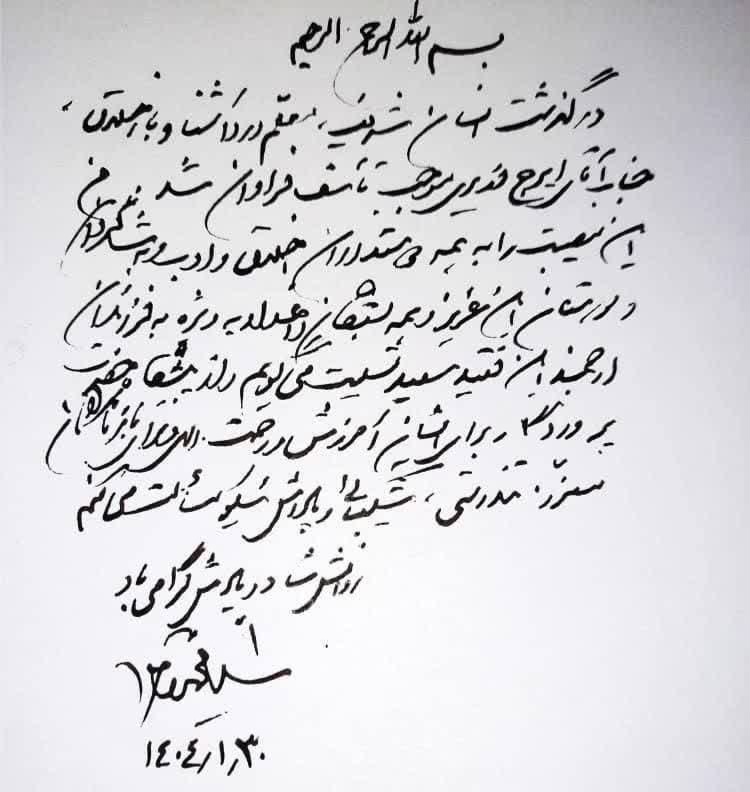 بسم الله الرحمن الرحیم
درگذشت انسان شریف، معلم درد آشنا و با اخلاق،
جناب آقای ایرج قدیری موجب تأسف فراوان شد. من
این مصیبت را به همه دوستداران اخلاق و ادب و به شاگردان
و دوستان این عزیز و همه بستگان داغدار به ویژه به فرزندان
ارجمند این فقید سعید تسلیت می گویم و از پیشگاه حضرت
پروردگار برای ایشان آمرزش و رحمت الهی و برای بازماندگان
معزز، تندرستی، شکیبائی و پاداش نیکو مسألت می کنم
روانش شاد و یادش گرامی باد
۱۴۰۴/۱/۳۰